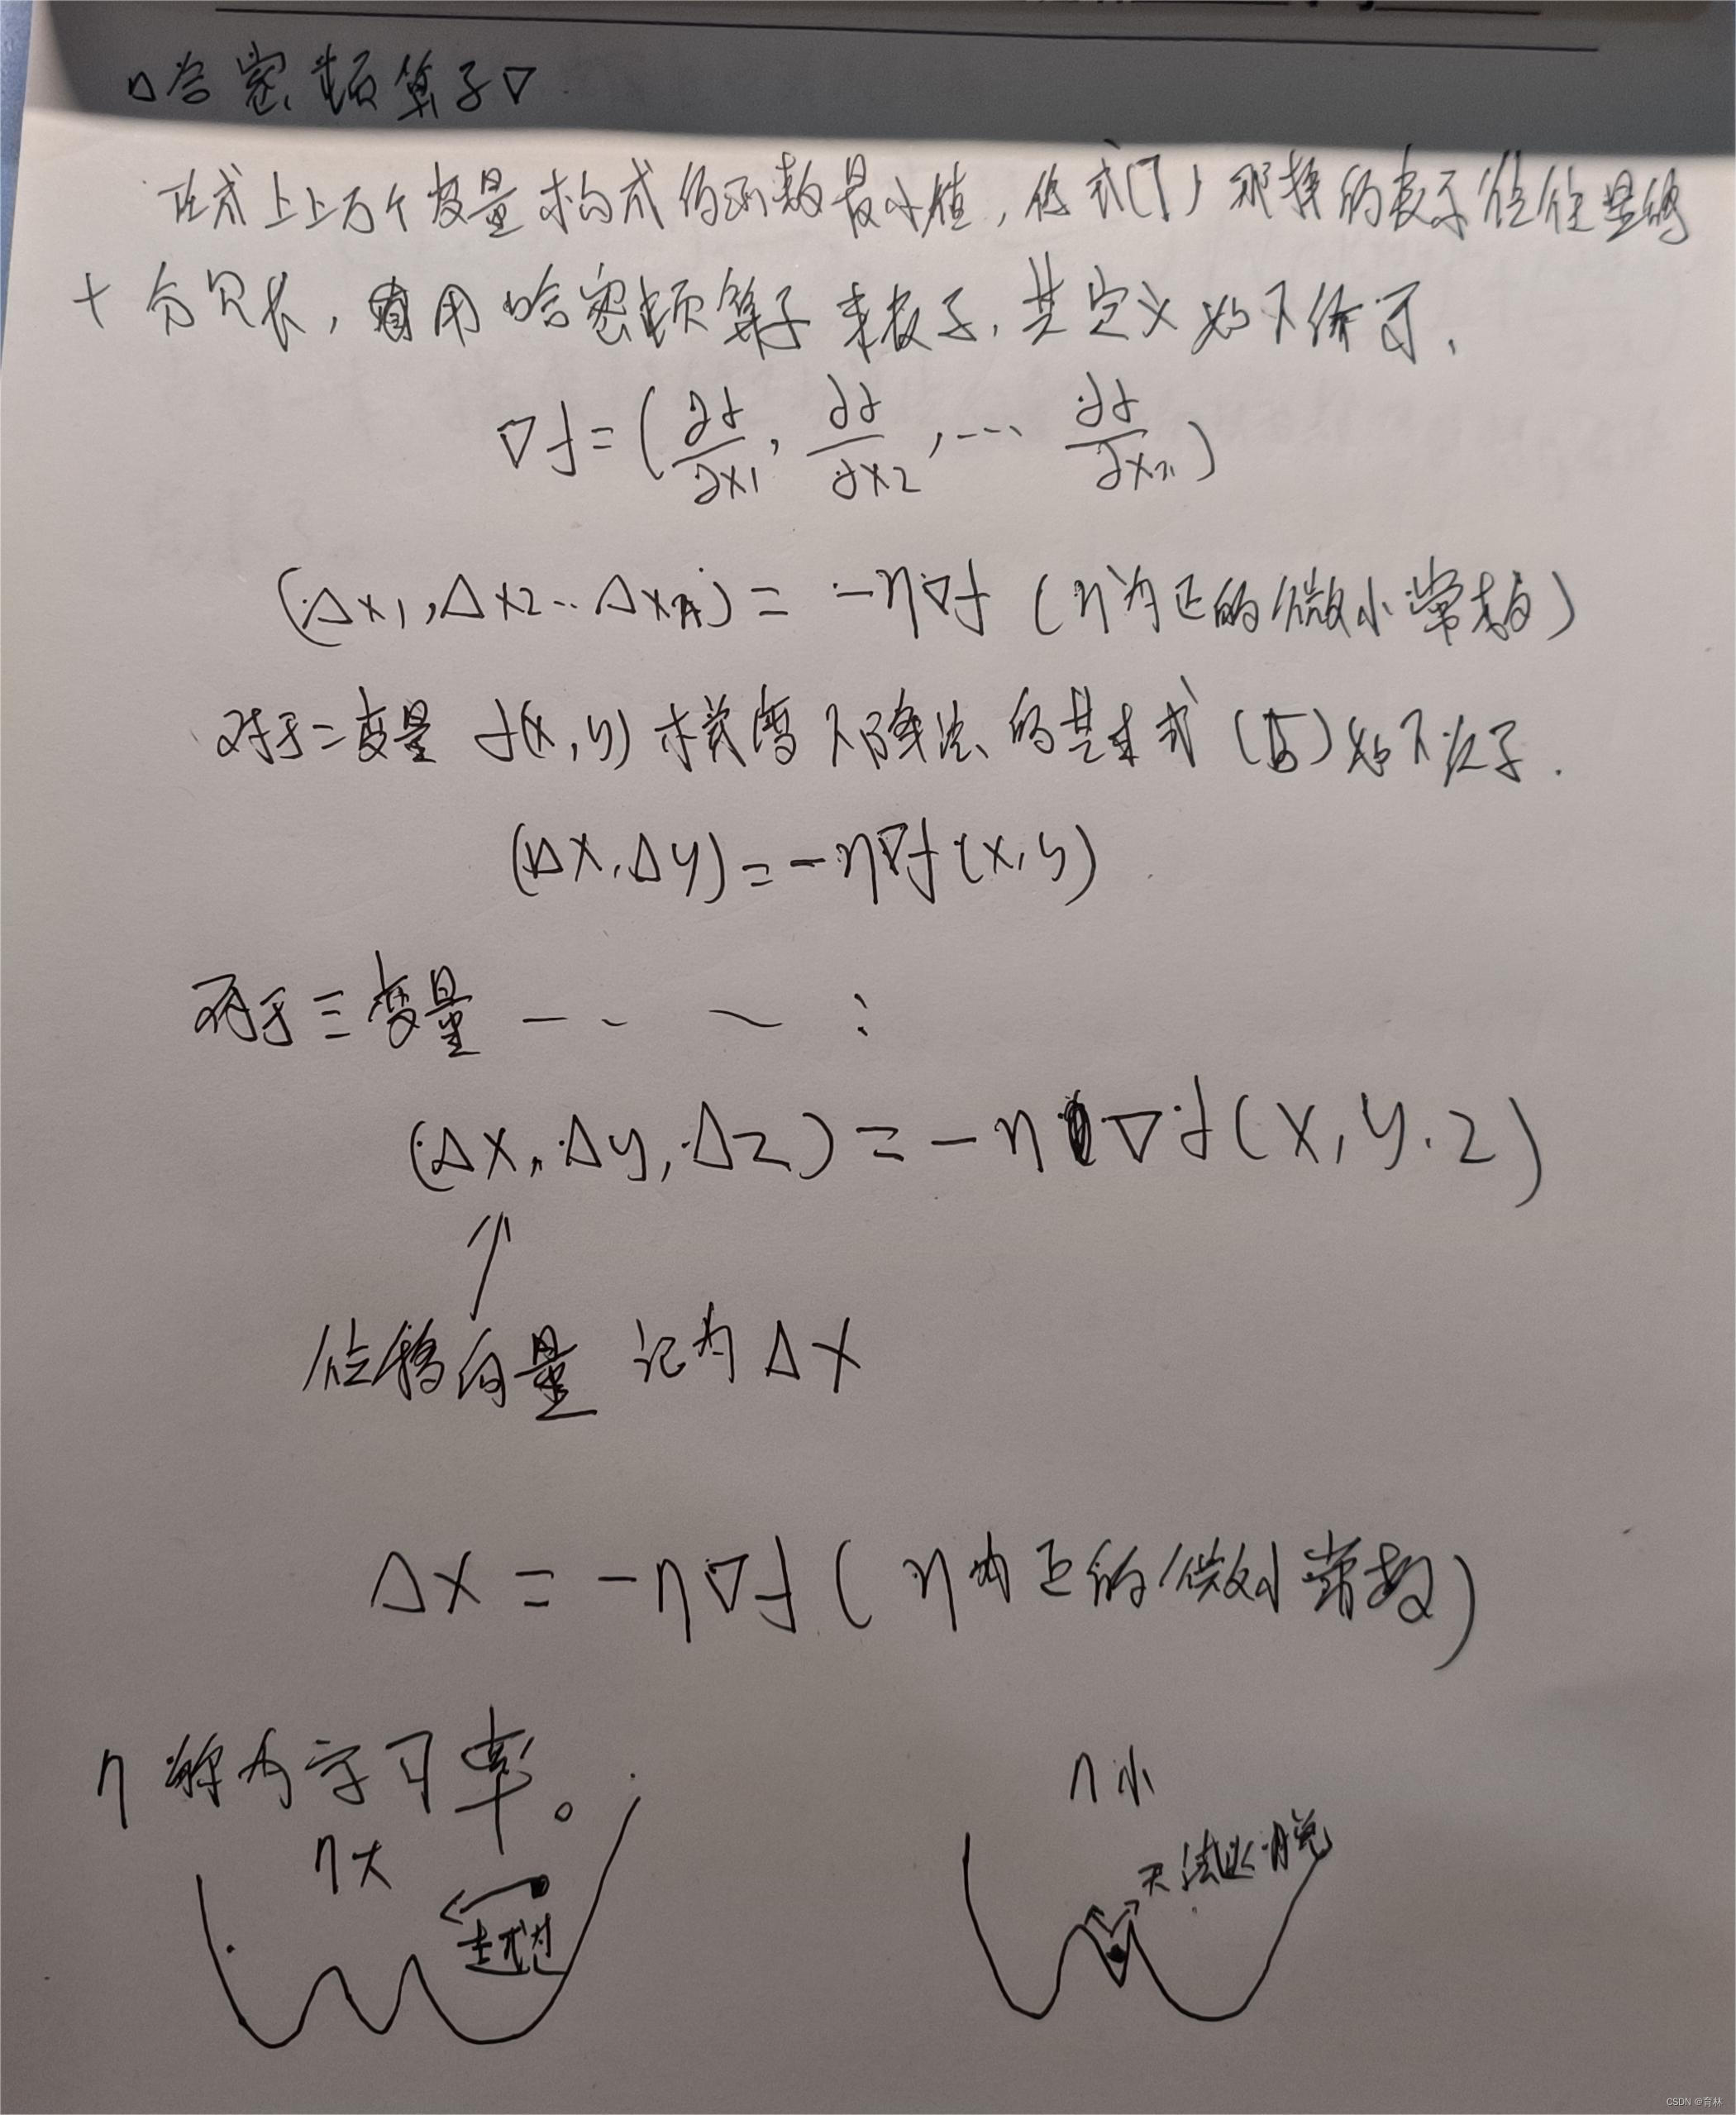 哈密顿算子∇
在式上上万个变量构成的函数最小值,像式(7)那样的表示往往显得
十分冗长,使用哈密顿算子来表示,其定义如下所示.
∇f=(∂f/∂x1, ∂f/∂x2, ... ∂f/∂xn)
(Δx1,Δx2...Δxn)=-η∇f (η为正的微小常数)
对于二变量 f(x,y) 求梯度下降法的基本式(5)如下表示.
(Δx,Δy)=-η∇f(x,y)
对于三变量 — - ~ :
(Δx,Δy,Δz)=-η∇f(x,y.z)
位移向量 记为 Δx
Δx=-η∇f(η为正的微小常数)
η称为学习率。
η大
越过
η小
无法逃脱
CSDN @育林